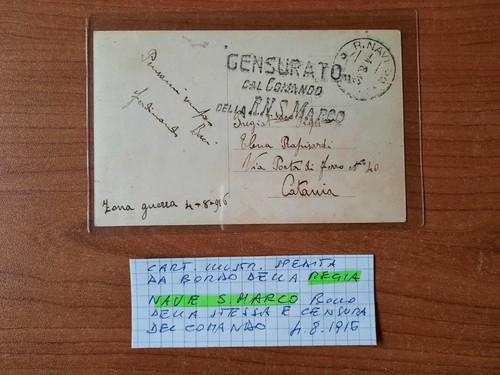 CENSURATO
DAL COMANDO
DELLA R.N. S. MARCO
R. NAVE
Elena Rapisardi
Via Porta di Ferro N° 40
Catania
Ferdinando
Zona guerra 4-8-916
CART. ILLUSTR. SPEDITA
DA BORDO DELLA REGIA
NAVE S. MARCO BOLLO
DELLA STESSA E CENSURA
DEL COMANDO 4.8.1916